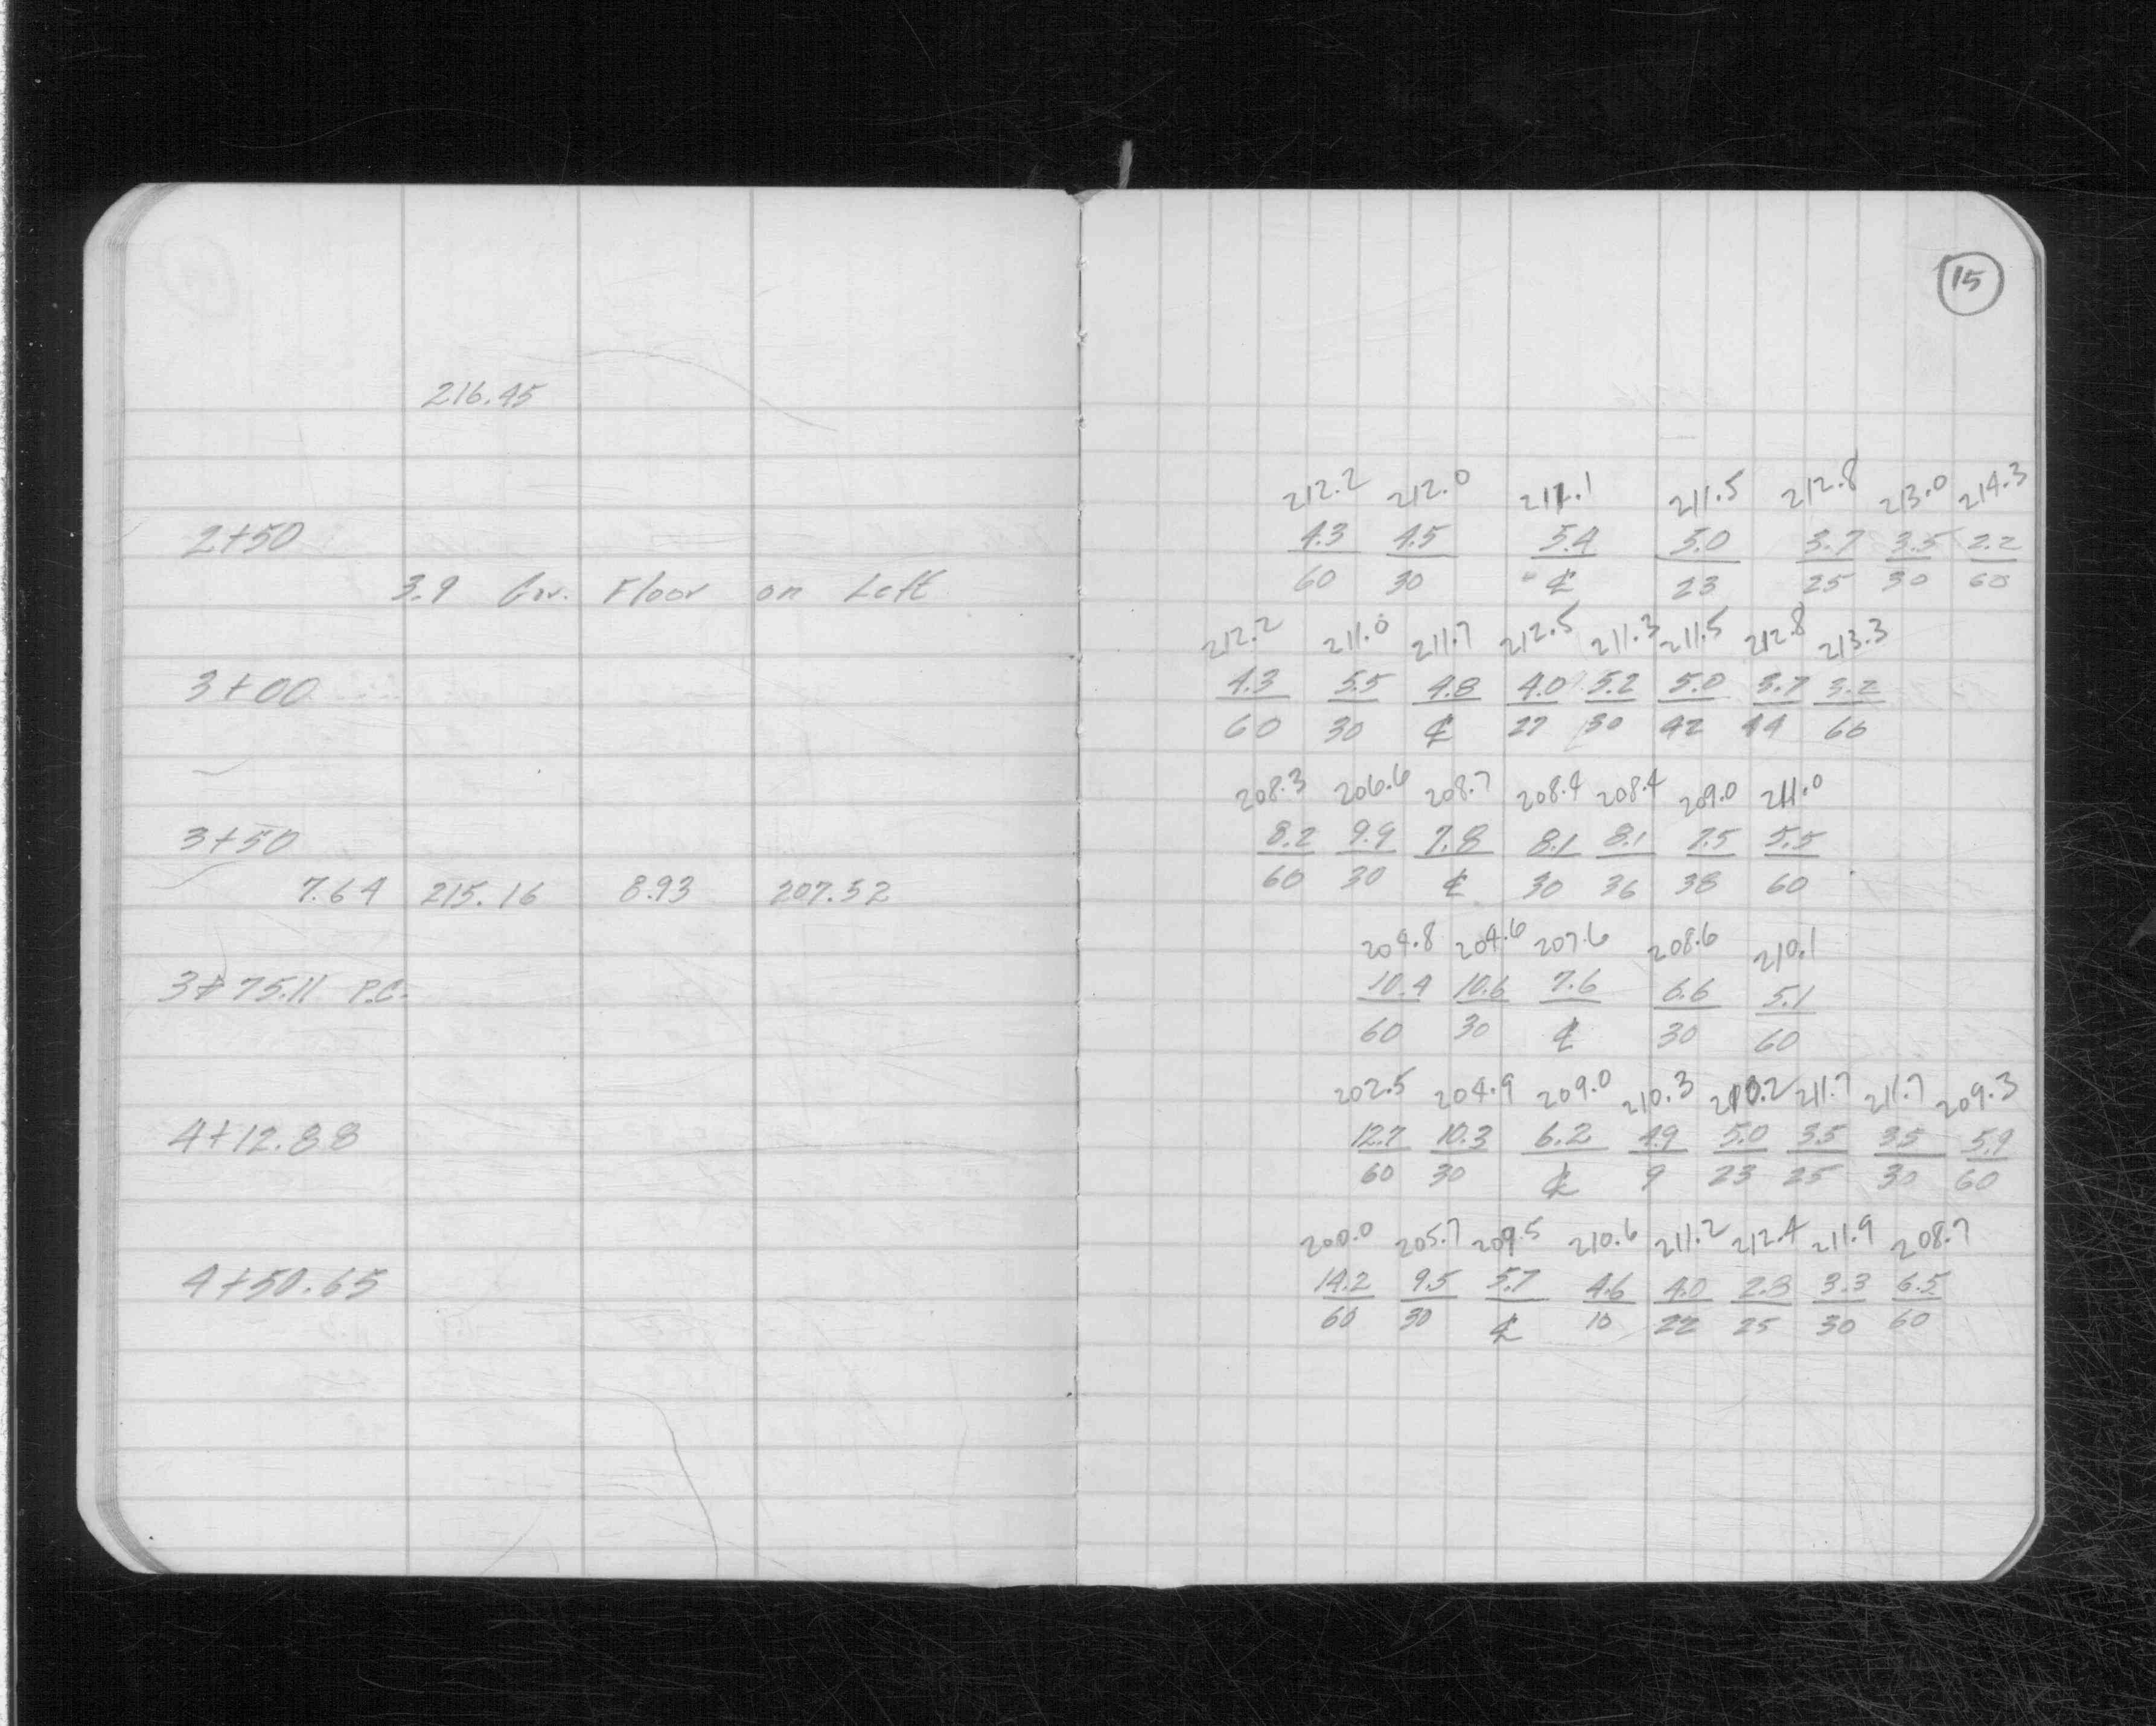 15
216.45
212.2 212.0 211.1 211.5 212.8 213.0 214.3
2+50 4.3 4.5 5.4 5.0 3.7 3.5 2.2
60 30 ℄ 23 25 30 60
3.9 Gar. Floor on Left
212.2 211.0 211.7 212.5 211.3 211.5 212.8 213.3
3+00 4.3 5.5 4.8 4.0 5.2 5.0 3.7 3.2
60 30 ℄ 27 30 42 44 60
208.3 206.6 208.7 208.4 208.4 209.0 211.0
3+50 8.2 9.9 7.8 8.1 8.1 7.5 5.5
60 30 ℄ 30 36 38 60
7.64 215.16 8.93 207.52
204.8 204.6 207.6 208.6 210.1
3+75.11 P.C. 10.4 10.6 7.6 6.6 5.1
60 30 ℄ 30 60
202.5 204.9 209.0 210.3 210.2 211.7 211.7 209.3
4+12.88 12.7 10.3 6.2 4.9 5.0 3.5 3.5 5.9
60 30 ℄ 9 23 25 30 60
200.0 205.7 209.5 210.6 211.2 212.4 211.9 208.7
4+50.65 14.2 9.5 5.7 4.6 4.0 2.8 3.3 6.5
60 30 ℄ 10 22 25 30 60